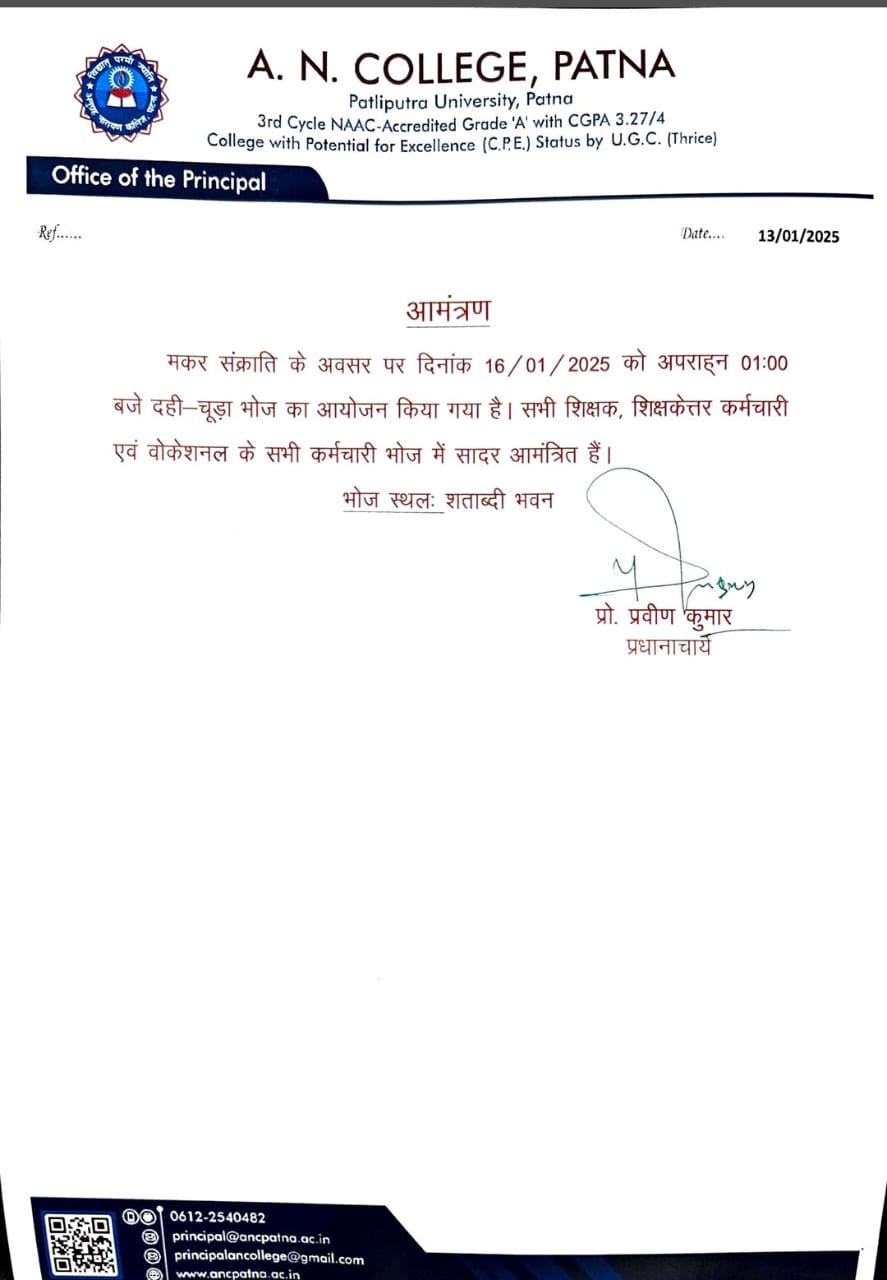 A. N. COLLEGE, PATNA
Patliputra University, Patna
3rd Cycle NAAC-Accredited Grade 'A' with CGPA 3.27/4
College with Potential for Excellence (C.P.E.) Status by U.G.C. (Thrice)
Office of the Principal
Ref......
Date.... 13/01/2025
आमंत्रण
मकर संक्राति के अवसर पर दिनांक 16/01/2025 को अपराह्न 01:00
बजे दही–चूड़ा भोज का आयोजन किया गया है। सभी शिक्षक, शिक्षकेत्तर कर्मचारी
एवं वोकेशनल के सभी कर्मचारी भोज में सादर आमंत्रित हैं।
भोज स्थलः शताब्दी भवन
प्रो. प्रवीण कुमार
प्रधानाचार्य
0612-2540482
principal@ancpatna.ac.in
principalancollege@gmail.com
www.ancpatna.ac.in